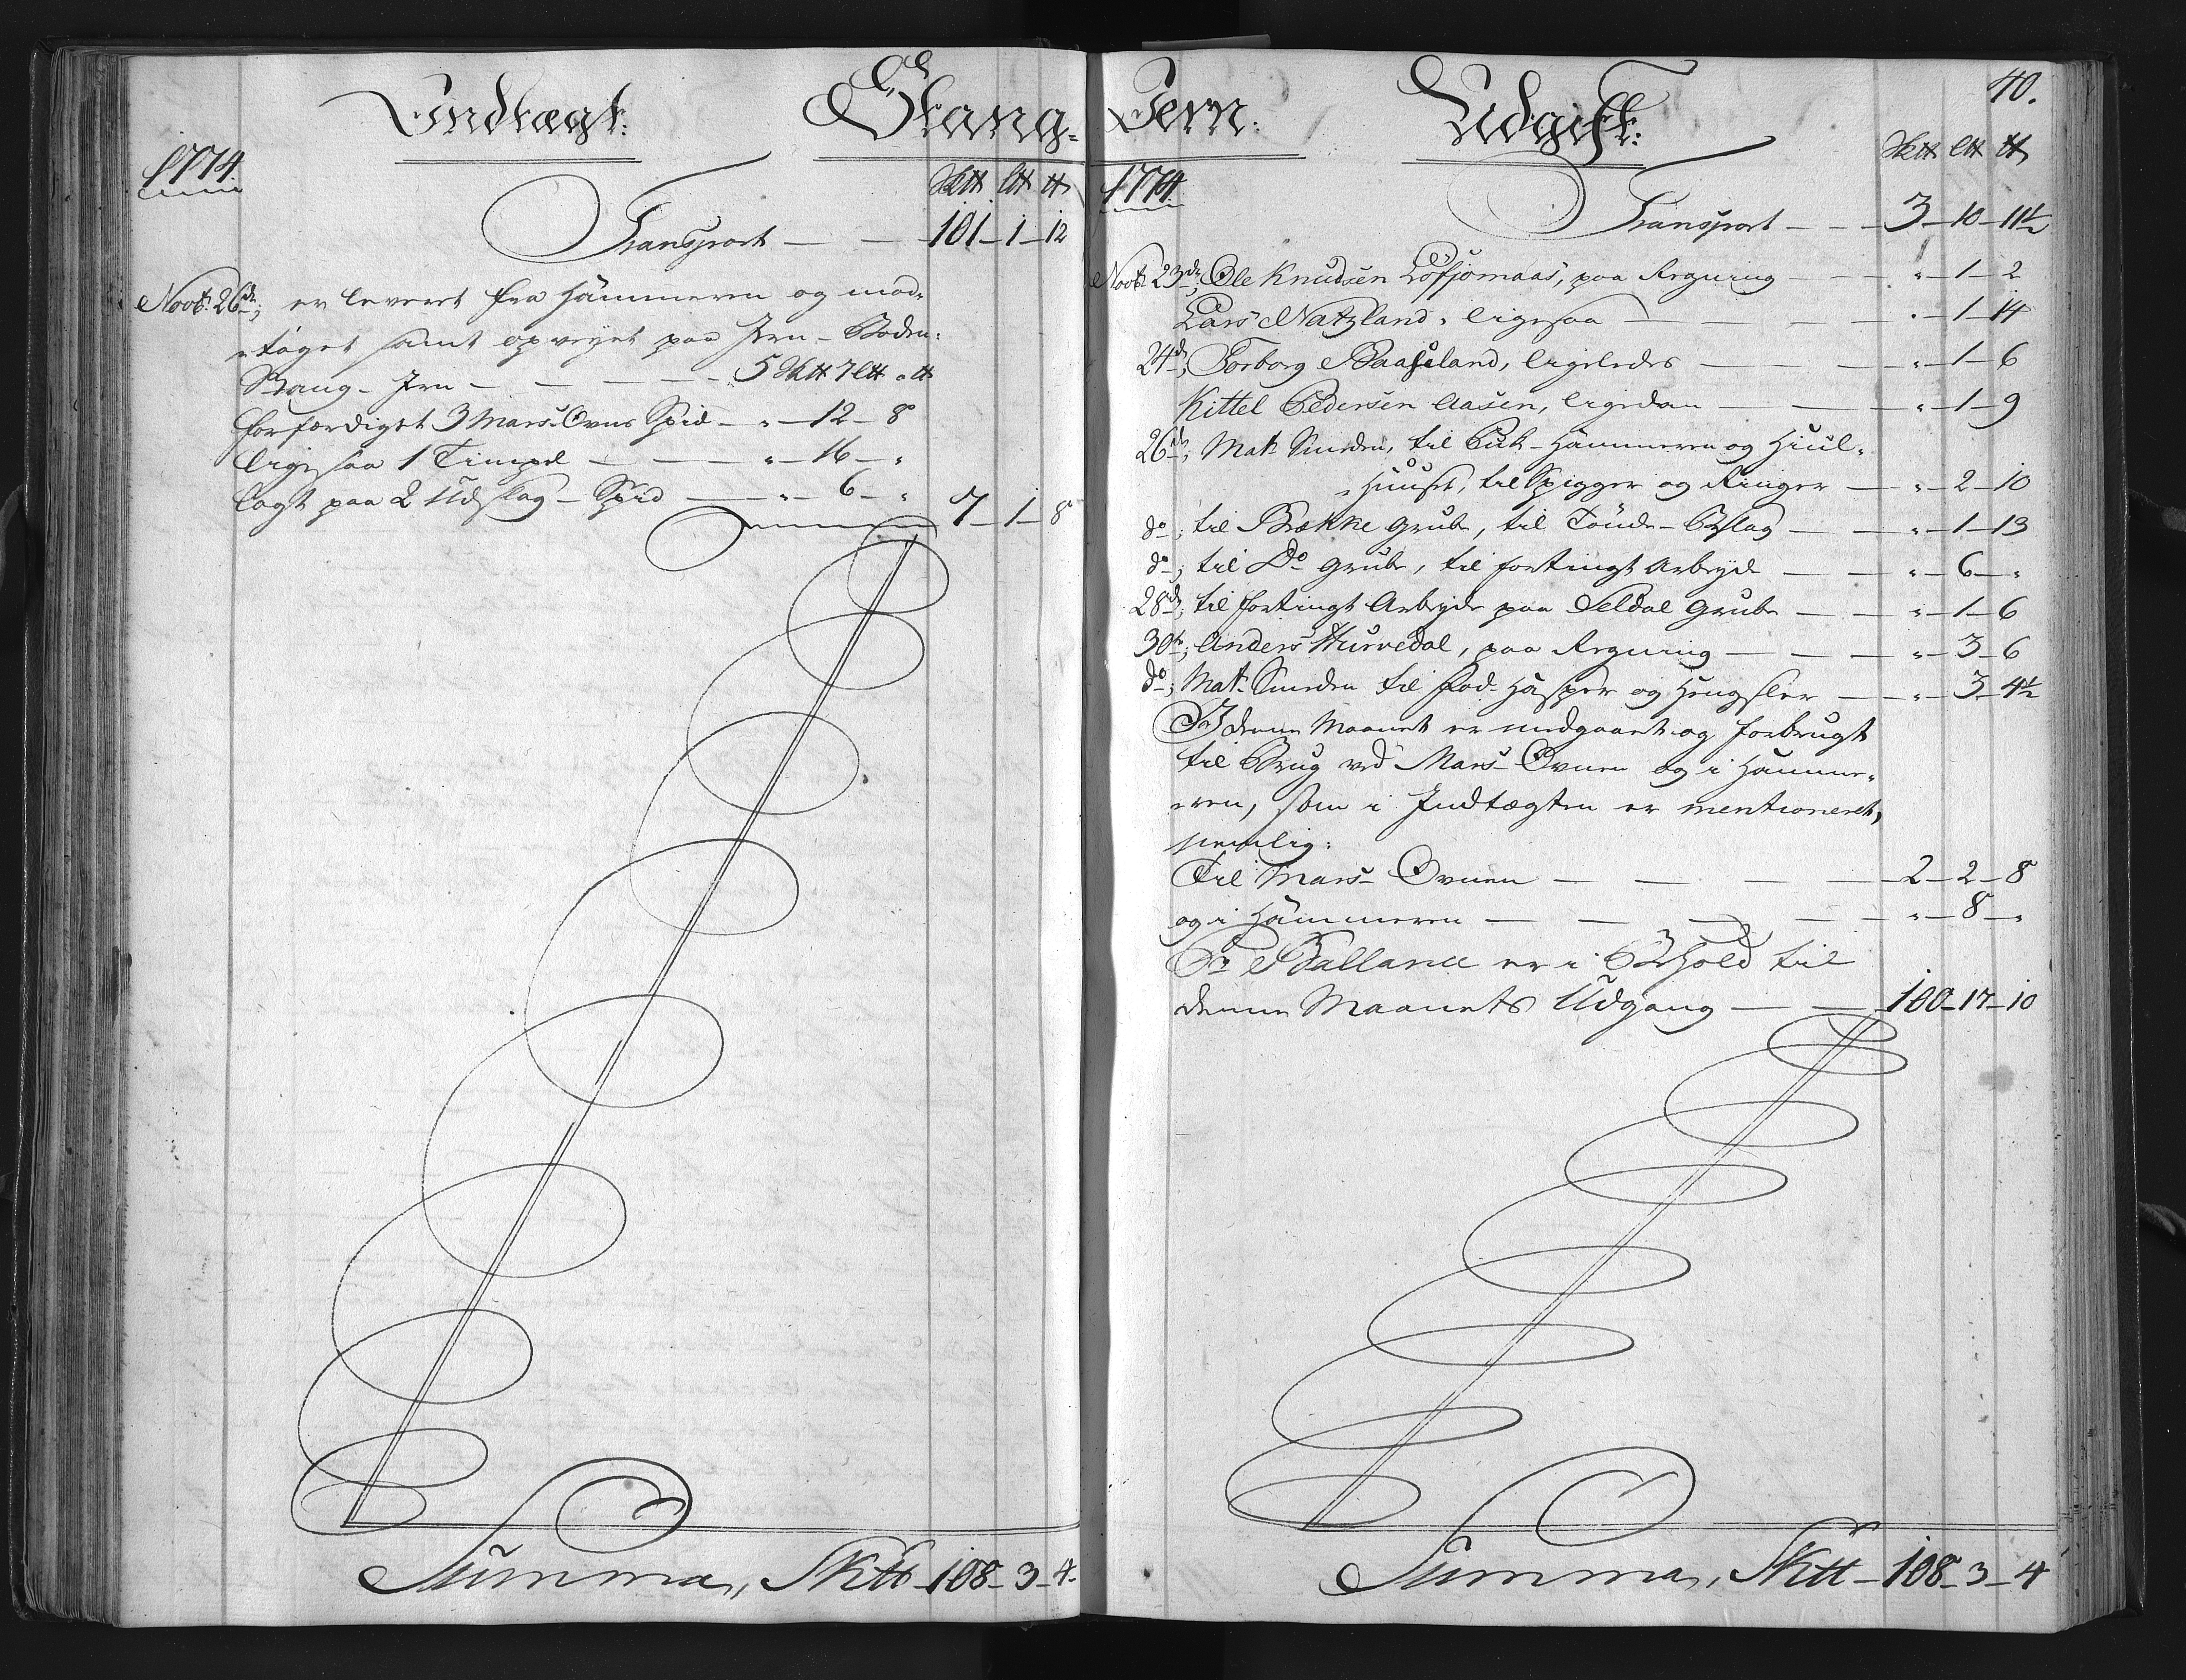 Indtægt:
Stang-
1774.
Sk℔ l℔ ℔
Transport — — 101 – 1 – 12
Novbr. 26de; er leveret fra Hammeren og mod-
„taget samt opveyet paa Jern-Boden:
Stang-Jern — — — — 5 Sk℔ 7 l℔ „ ℔
forfærdiget 3 Mars-Ovns Spid — „ – 12 – 8
ligesaa 1 Timpel — — — „ – 16 – „
lagt paa 2 Udslag-Spid — — „ – 6 – „ 7 – 1 – 8
Summa, Sk℔ – 108 – 3 – 4.
40.
Jern:
Udgift:
1774.
Sk℔ l℔ ℔
Transport — — — 3 – 10 – 11½
Novbr. 23de; Ole Knudsen Lofjomaas, paa Regning — „ – 1 – 2
Lars Natzland, ligesaa — — — „ – 1 – 14
24de; Torborg Baaseland, ligeledes — — „ – 1 – 6
Kittel Pedersen Aasen, ligedan — — „ – 1 – 9
26de; Mats Smeden, til Puk-Hammeren og Hiul-
„Huuset, til Spigger og Ringer — „ – 2 – 10
do; til Bække Grube, til Tønde-Beslag — „ – 1 – 13
do; til Do Grube, til fortingt Arbeyde — — „ – 6 – „
28de; til fortingt Arbeyde paa Seldal Grube — „ – 1 – 6
30te; Anders Hurvedal, paa Regning — — „ – 3 – 6
do; Mats Smeden til Lod-Hasper og Hengsler — „ – 3 – 4½
I denne Maanet er medgaaet og forbrugt
til Brug ved Mars-Ovnen og i Hamme-
„ren, som i Indtægten er mentioneret,
nemlig:
Til Mars-Ovnen — — — — 2 – 2 – 8
og i Hammeren — — — — „ – 8 – „
Pr Ballance er i Behold til
denne Maanets Udgang — — 100 – 17 – 10
Summa, Sk℔ – 108 – 3 – 4